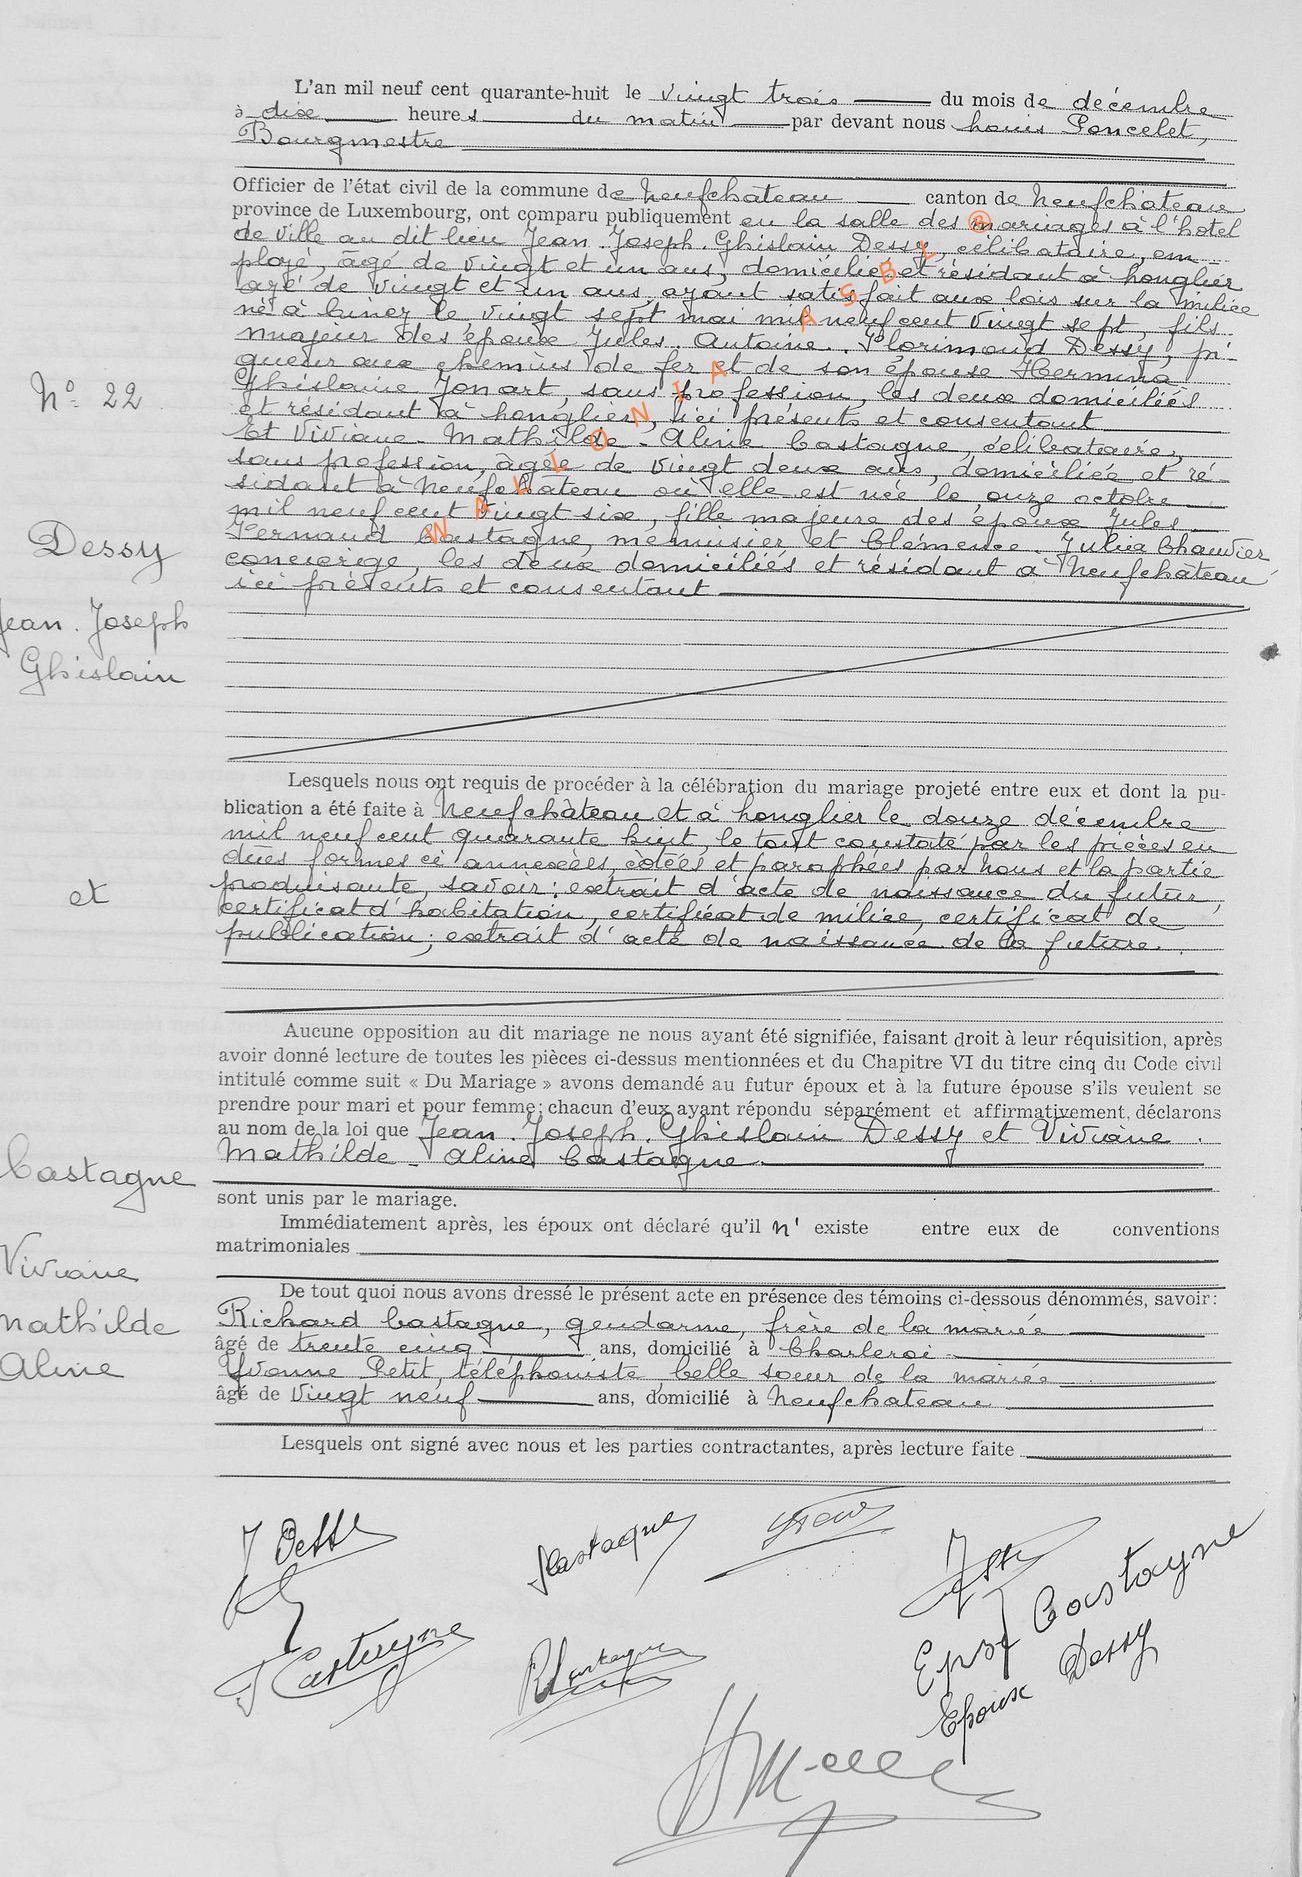 L'an mil neuf cent quarante-huit le vingt trois du mois de décembre
à dix heures du matin par devant nous Louis Poncelet,
Bourgmestre
Officier de l'état civil de la commune de Neufchâteau canton de Neufchâteau
province de Luxembourg, ont comparu publiquement en la salle des mariages à l'hôtel
de ville au dit lieu Jean. Joseph. Ghislain Dessy, célibataire, em-
ployé, âgé de vingt et un ans, domicilié et résidant à Longlier
âgé de vingt et un ans, ayant satisfait aux lois sur la milice
né à le vingt sept mai mil neuf cent vingt sept, fils
majeur des époux Jules. Antoine. Florimond Dessy, pi-
queur aux chemins de fer et de son épouse Hermina
Ghislaine Jonart, sans profession, les deux domiciliés
et résidant à Longlier, ici présents et consentant
Et Viviane-Mathilde-Aline Castagne, célibataire,
sans profession, âgée de vingt deux ans, domiciliée et ré-
sidant à Neufchâteau où elle est née le onze octobre
mil neuf cent vingt six, fille majeure des époux Jules
Fernand Castagne, menuisier et Clémence. Julia Chauvier
concierge, les deux domiciliés et résidant à Neufchâteau
ici présents et consentant
WALLONIA ASBL ®
N° 22
Dessy
Jean. Joseph
Ghislain
et
Castagne
Viviane
Mathilde
Aline
Lesquels nous ont requis de procéder à la célébration du mariage projeté entre eux et dont la pu-
blication a été faite à Neufchâteau et à Longlier le douze décembre
mil neuf cent quarante huit, le tout constaté par les pièces en
dûes formes ci annexées, côtées et paraphées par nous et la partie
produisante, savoir: extrait d'acte de naissance du futur,
certificat d'habitation, certificat de milice, certificat de
publication; extrait d'acte de naissance de la future.
Aucune opposition au dit mariage ne nous ayant été signifiée, faisant droit à leur réquisition, après
avoir donné lecture de toutes les pièces ci-dessus mentionnées et du Chapitre VI du titre cinq du Code civil
intitulé comme suit « Du Mariage » avons demandé au futur époux et à la future épouse s'ils veulent se
prendre pour mari et pour femme; chacun d'eux ayant répondu séparément et affirmativement, déclarons
au nom de la loi que Jean. Joseph. Ghislain Dessy et Viviane.
Mathilde-Aline Castagne.
sont unis par le mariage.
Immédiatement après, les époux ont déclaré qu'il n' existe entre eux de conventions
matrimoniales
De tout quoi nous avons dressé le présent acte en présence des témoins ci-dessous dénommés, savoir:
Richard Castagne, gendarme, frère de la mariée
âgé de trente cinq ans, domicilié à Charleroi
Yvonne Petit, téléphoniste belle soeur de la mariée
âgé de vingt neuf ans, domicilié à Neufchateau
Lesquels ont signé avec nous et les parties contractantes, après lecture faite
J Dessy
Castagne
J Castagne
R Castagne
Castagne
Epouse Dessy